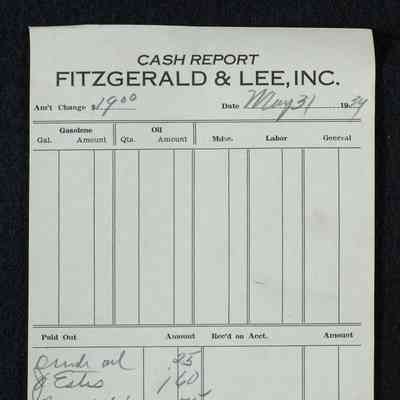 CASH REPORT
FITZGERALD & LEE, INC.
Am't Change $19.00 Date May 31 1934
Gasolene Oil
Gal. Amount Qts. Amount Mdse. Labor General
Paid Out Amount Rec'd on Acct. Amount
Crude oil .25
J Estes 1.60